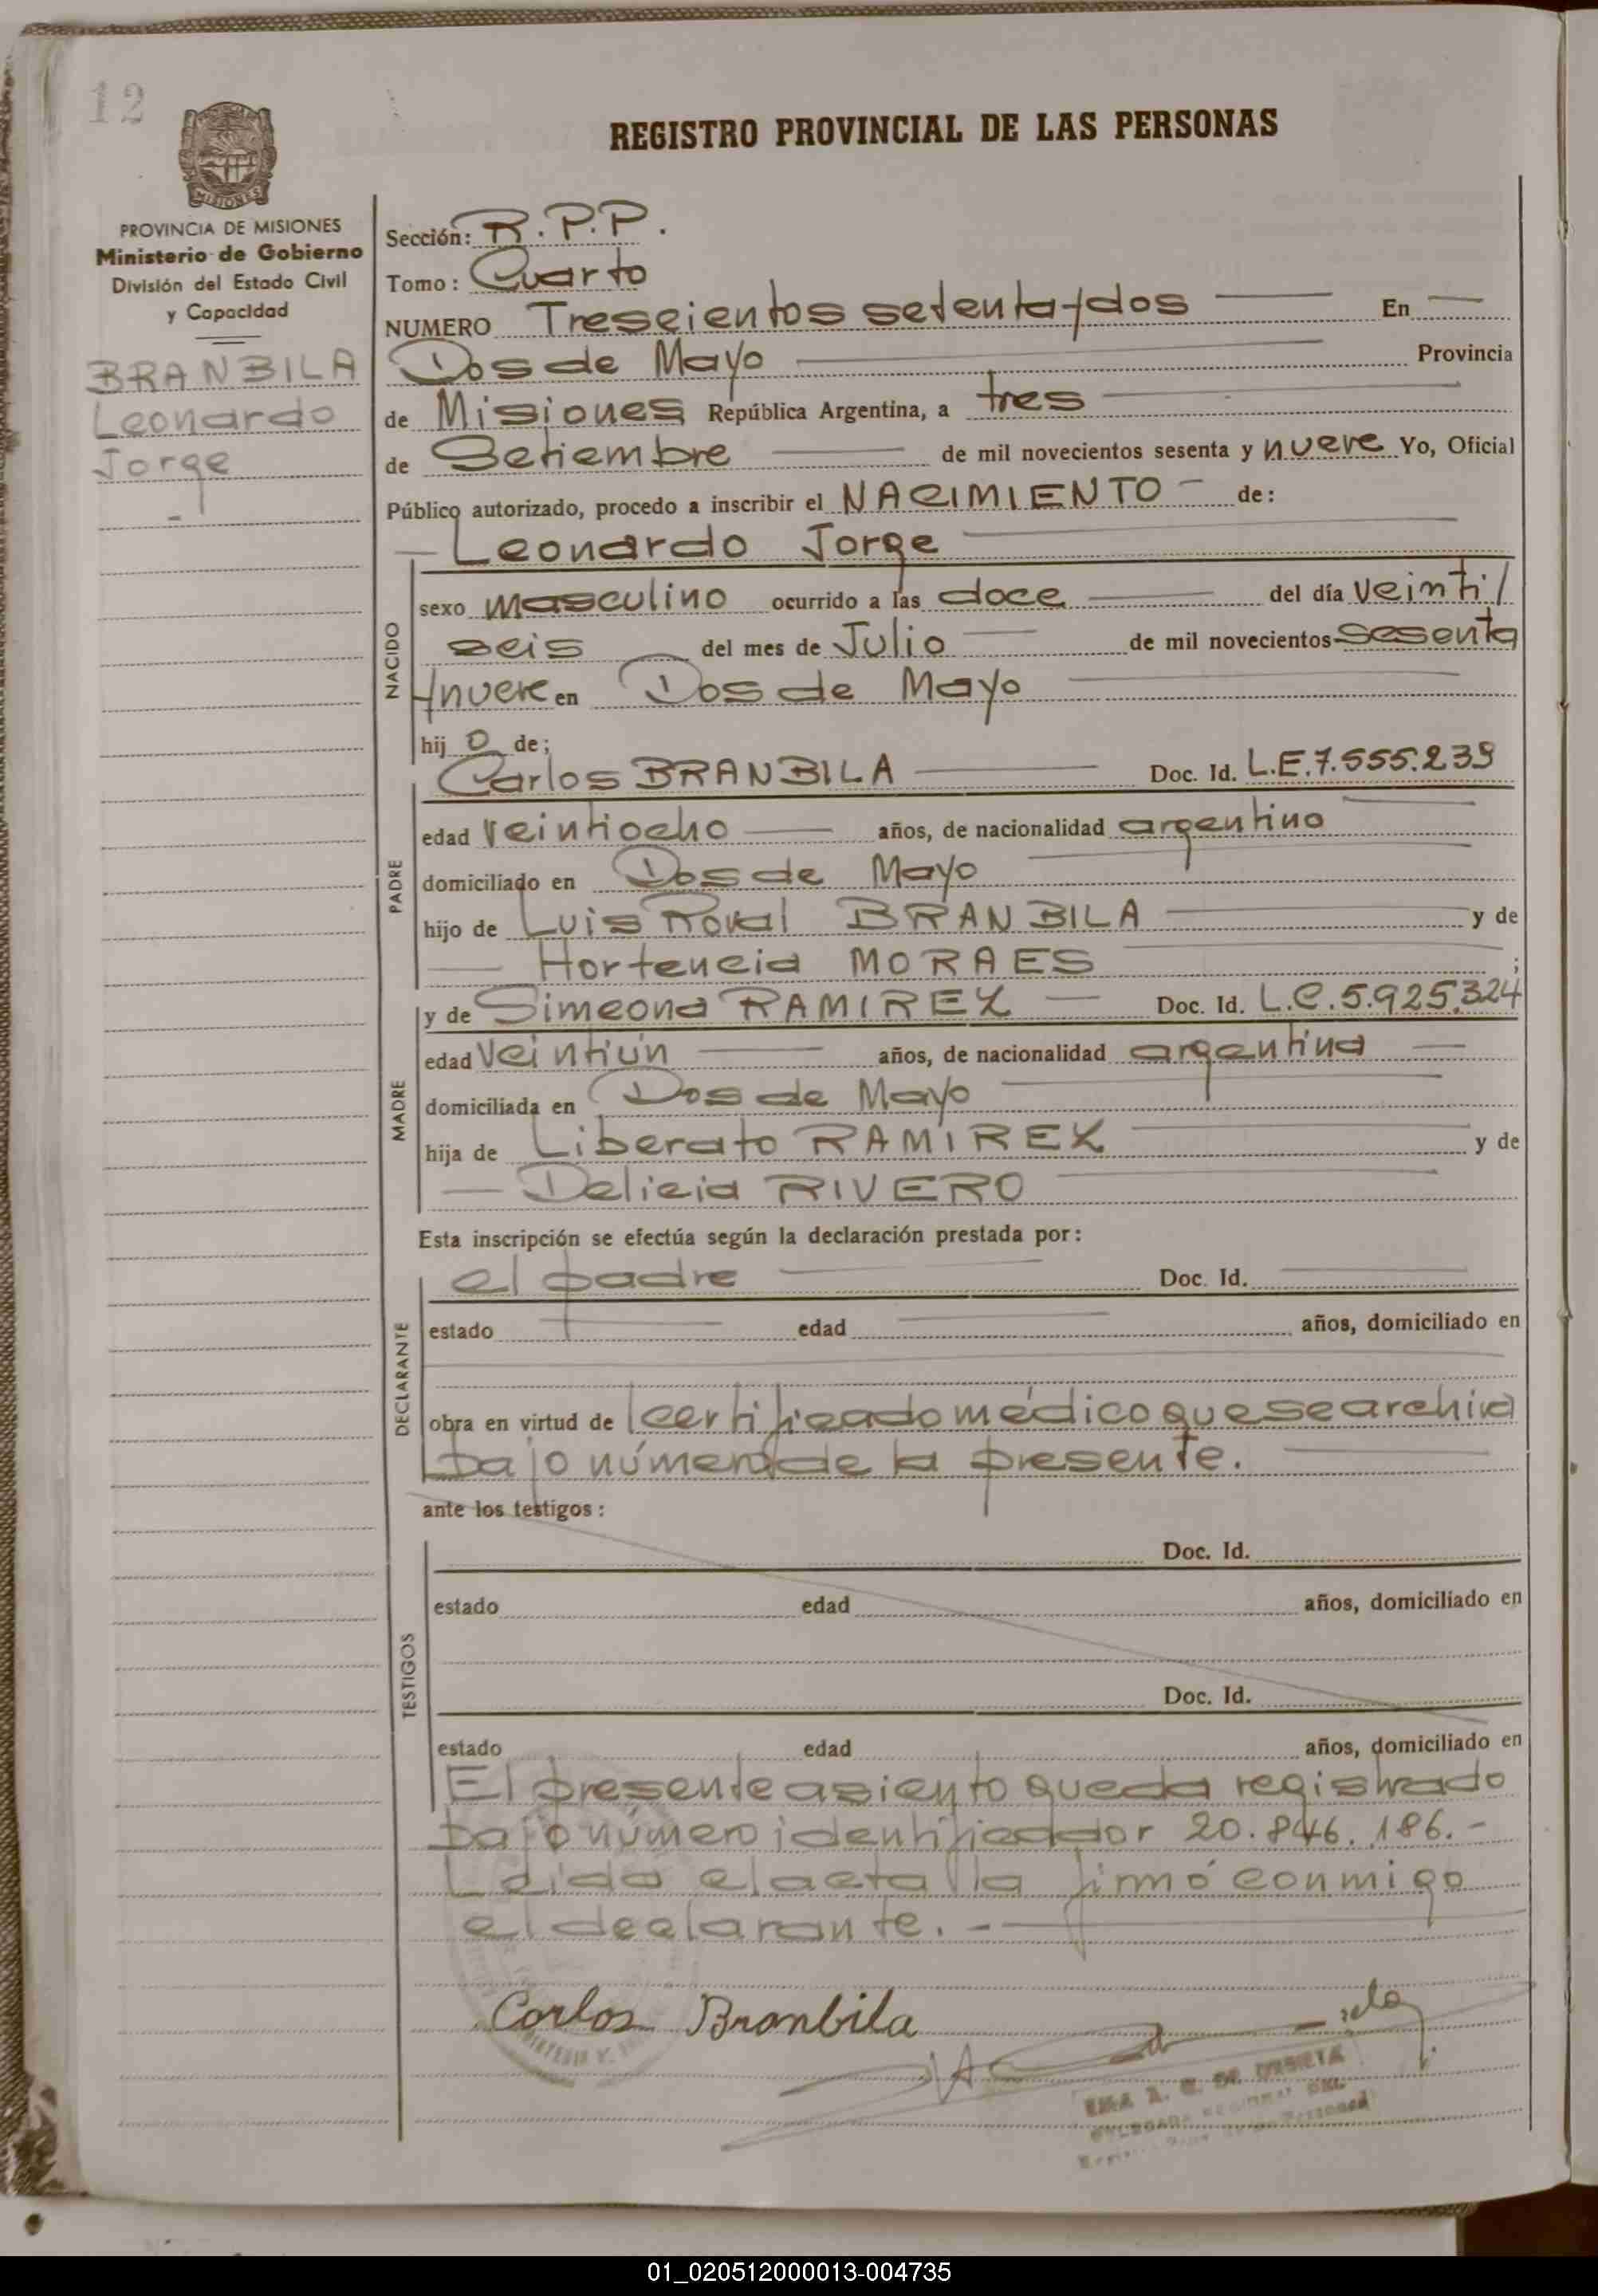 12
REGISTRO PROVINCIAL DE LAS PERSONAS
MISIONES
PROVINCIA DE MISIONES
Ministerio de Gobierno
División del Estado Civil
y Capacidad
BRANBILA
Leonardo
Jorge
Sección: R.P.P.
Tomo: Cuarto
NUMERO Trescientos setenta y dos En
Dos de Mayo Provincia
de Misiones República Argentina, a tres
de Setiembre de mil novecientos sesenta y nueve Yo, Oficial
Público autorizado, procedo a inscribir el NACIMIENTO - de:
Leonardo Jorge
NACIDO
sexo masculino ocurrido a las doce del día veinti/
seis del mes de Julio de mil novecientos sesenta
y nueve en Dos de Mayo
hijo de;
PADRE
Carlos BRANBILA Doc. Id. L.E.7.555.239
edad veintiocho años, de nacionalidad argentino
domiciliado en Dos de Mayo
hijo de Luis BRANBILA y de
Hortencia MORAES ;
MADRE
y de Simeona RAMIREZ Doc. Id. L.C.5.925.324
edad veintiún años, de nacionalidad argentina
domiciliada en Dos de Mayo
hija de Liberato RAMIREZ y de
Delicia RIVERO
Esta inscripción se efectúa según la declaración prestada por:
DECLARANTE
el padre Doc. Id.
estado edad años, domiciliado en
obra en virtud de certificado médico que se archiva
bajo número de la presente.
ante los testigos:
TESTIGOS
Doc. Id.
estado edad años, domiciliado en
Doc. Id.
estado edad años, domiciliado en
El presente asiento queda registrado
bajo número identificador 20.846.186.-
Leída el acta la firmó conmigo
el declarante.-
Carlos Branbila
01_020512000013-004735